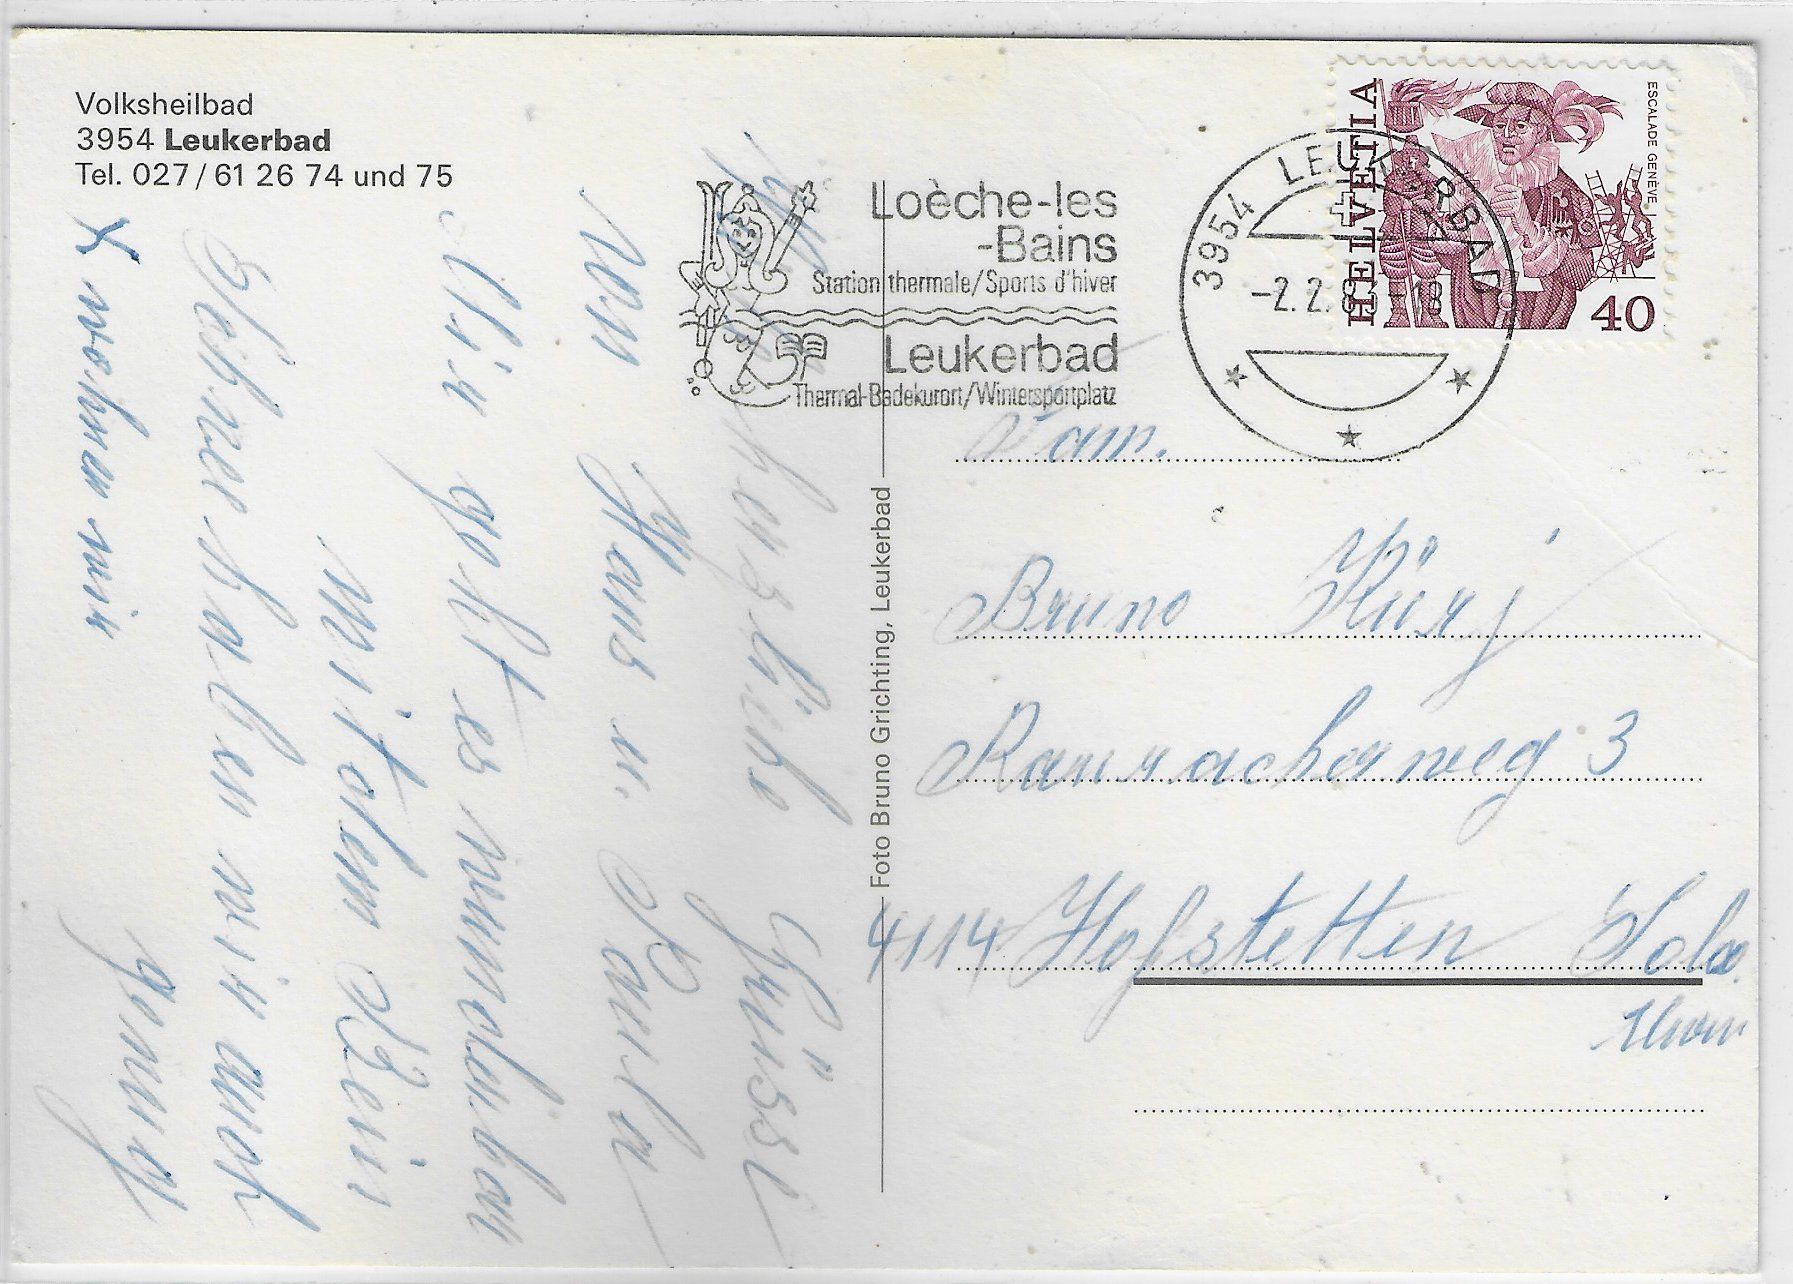 Volksheilbad
3954 Leukerbad
Tel. 027/61 26 74 und 75
Loèche-les
-Bains
Station thermale/Sports d'hiver
Leukerbad
Thermal-Badekurort/Wintersportplatz
3954 LEUKERBAD
-2.2.8 -18
HELVETIA
ESCALADE GENÈVE
40
herzliche Grüssi
von Hans u. Paula
Mir geht es wunderbar
mit dem Bein
Schnee haben wir auch
genug
X wohnen wir
Foto Bruno Grichting, Leukerbad
Fam.
Bruno Küry
Rauracherweg 3
4114 Hofstetten Solo.
thurn